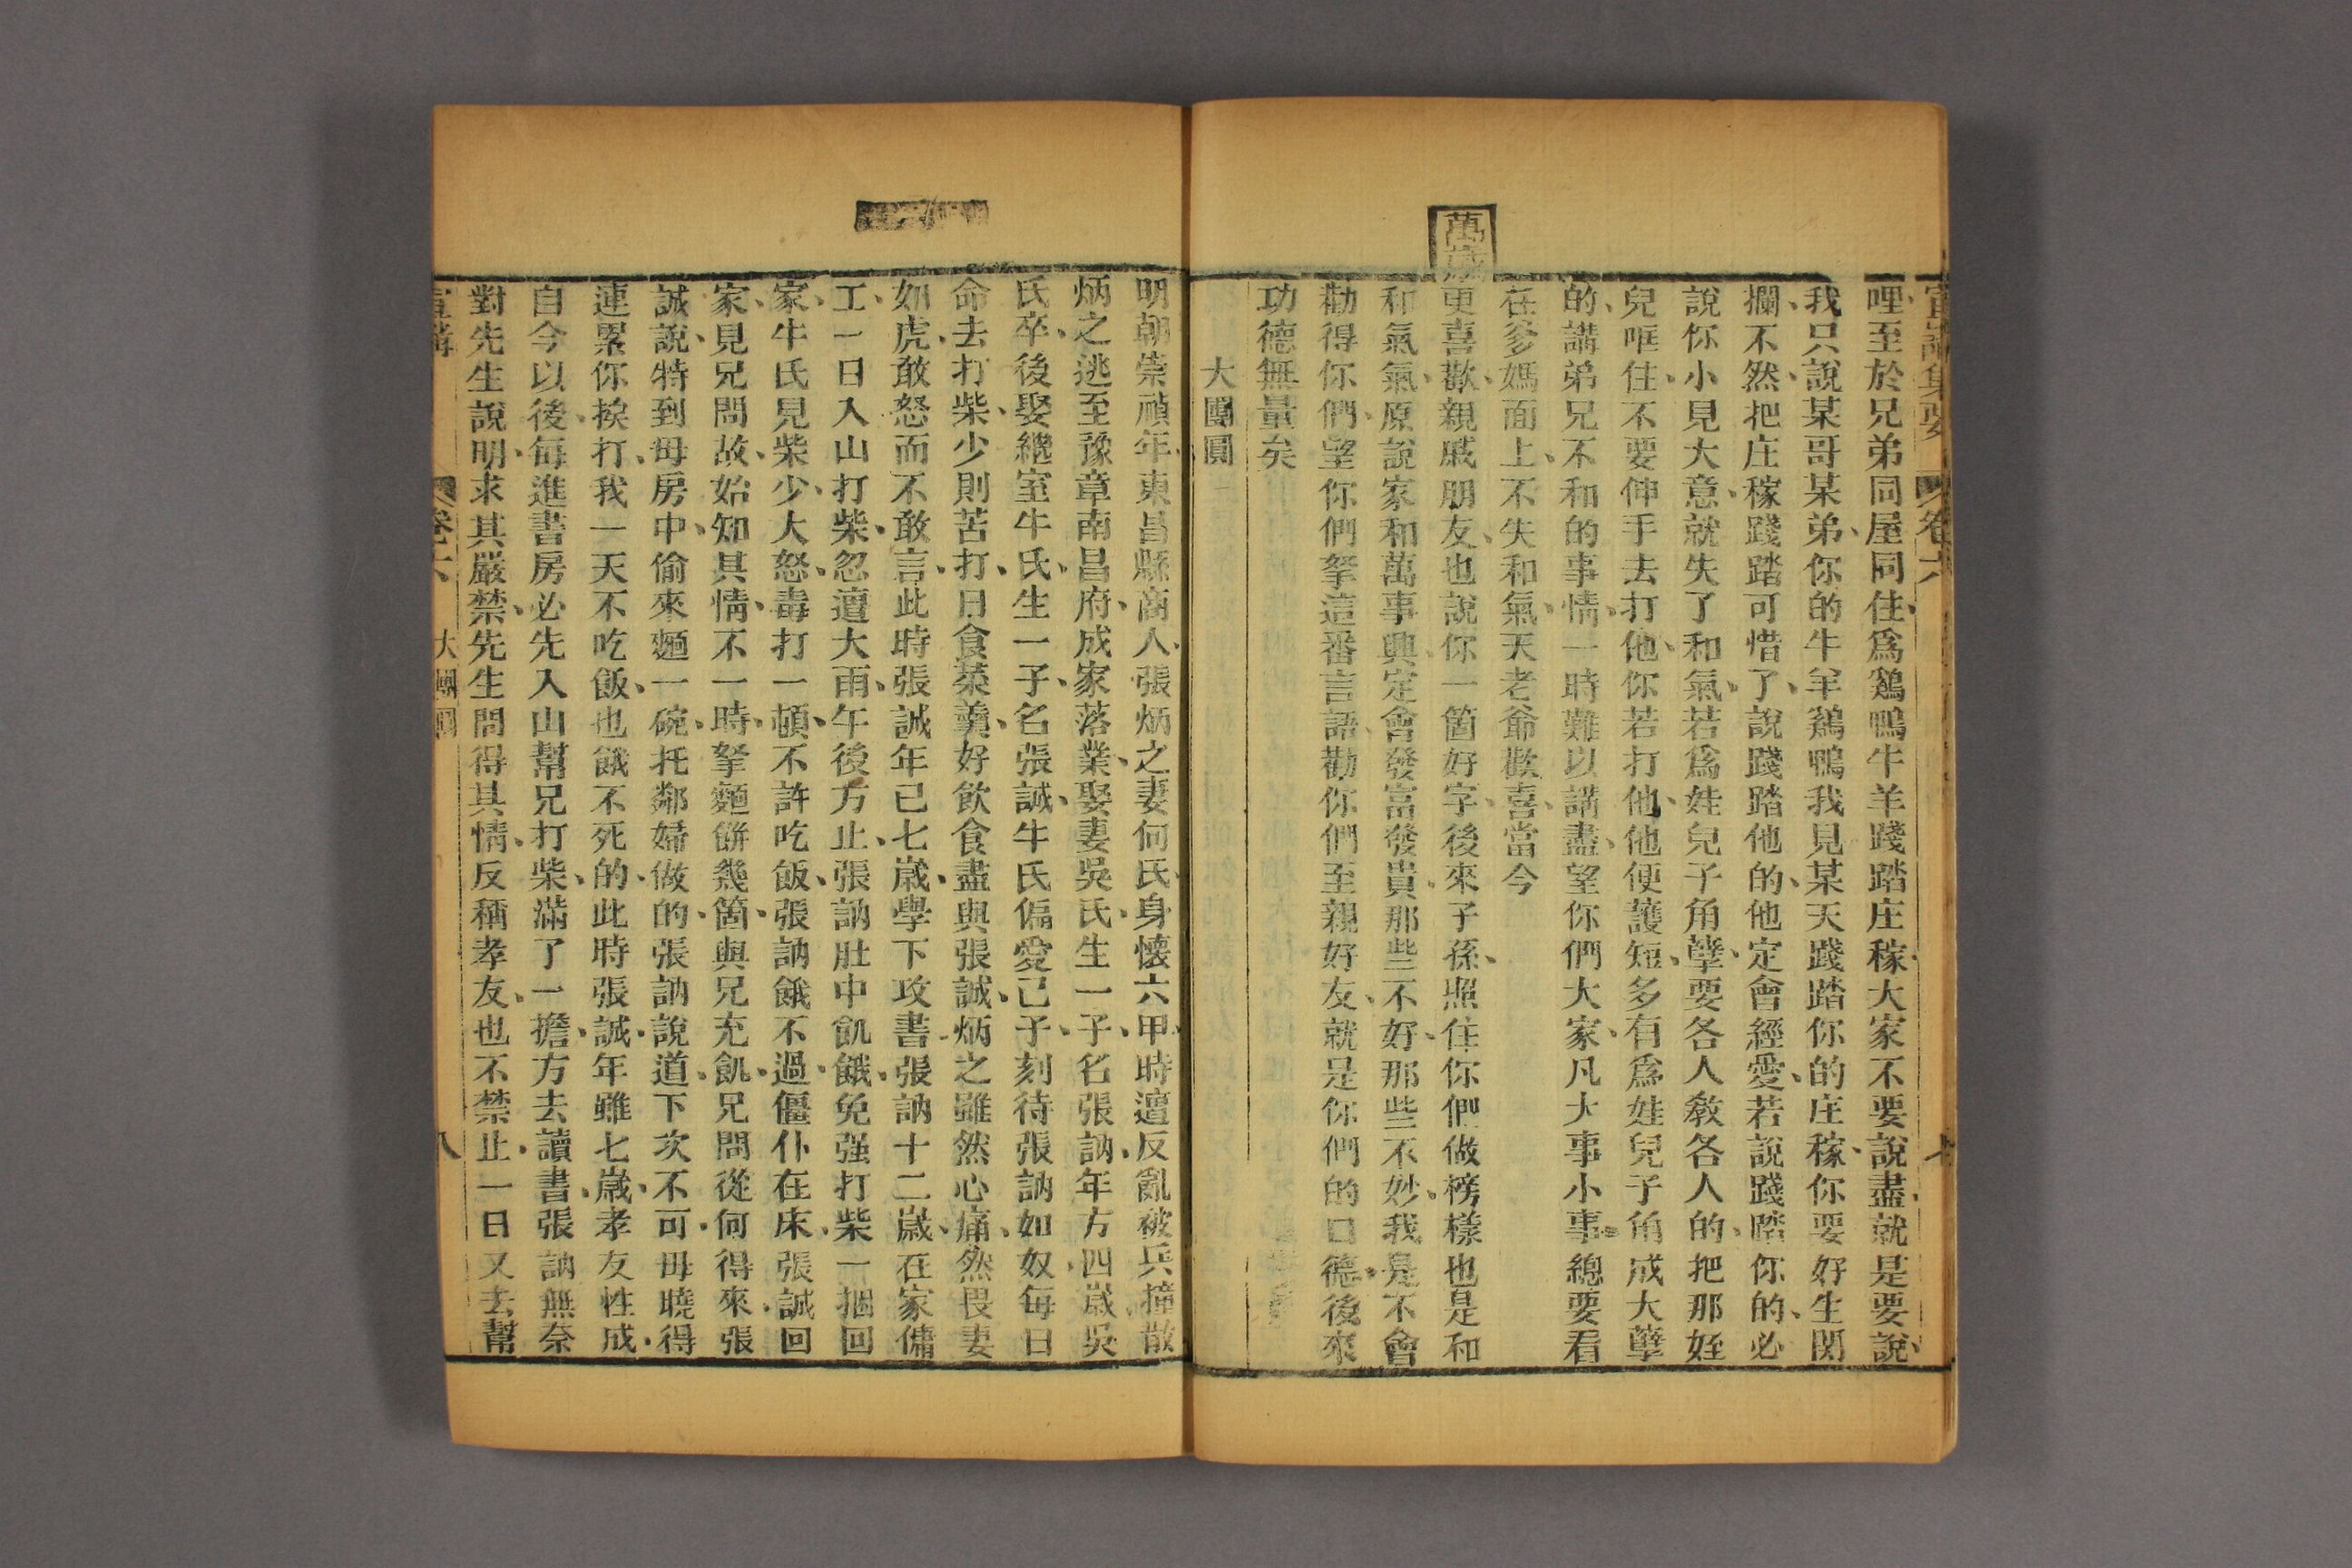 宣講集要 卷六 七
哩至於兄弟同屋同住爲鷄鴨牛羊踐踏庄稼大家不要說盡就是要說
我只說某哥某弟你的牛羊鷄鴨我見某天踐踏你的庄稼你要好生関
攔不然把庄稼踐踏可惜了說踐踏他的他定會經愛若說踐踏你的必
說你小見大意就失了和氣若爲娃兒子角孽要各人教各人的把那姪
兒哐住不要伸手去打他你若打他他便護短多有爲娃兒子角成大孽
的講弟兄不和的事情一時難以講盡望你們大家凡大事小事總要看
在爹媽面上不失和氣天老爺歡喜當今
萬歲
更喜歡親戚朋友也說你一箇好字後來子孫照住你們做榜樣也是和
和氣氣原說家和萬事興定會發富發貴那些不好那些不妙我是不會
勸得你們望你們拏這番言語勸你們至親好友就是你們的口德後來
功德無量矣
大團圓
明朝崇禎年東昌縣商人張炳之妻何氏身懷六甲時遭反亂被兵撞散
炳之逃至豫章南昌府成家落業娶妻吳氏生一子名張訥年方四歲吳
氏卒後娶繼室牛氏生一子名張誠牛氏偏愛己子刻待張訥如奴每日
命去打柴少則苦打日食菜羹好飲食盡與張誠炳之雖然心痛然畏妻
如虎敢怒而不敢言此時張誠年已七歲學下攻書張訥十二歲在家傭
工一日入山打柴忽遭大雨午後方止張訥肚中飢餓免强打柴一捆回
家牛氏見柴少大怒毒打一頓不許吃飯張訥餓不過僵仆在床張誠回
家見兄問故始知其情不一時拏麵餅幾箇與兄充飢兄問從何得來張
誠說特到母房中偷來麵一碗托鄰婦做的張訥說道下次不可母曉得
連累你挨打我一天不吃飯也餓不死的此時張誠年雖七歲孝友性成
自今以後每進書房必先入山幫兄打柴滿了一擔方去讀書張訥無奈
對先生說明求其嚴禁先生問得其情反稱孝友也不禁止一日又去幫
宣講 卷六 大團圓 八